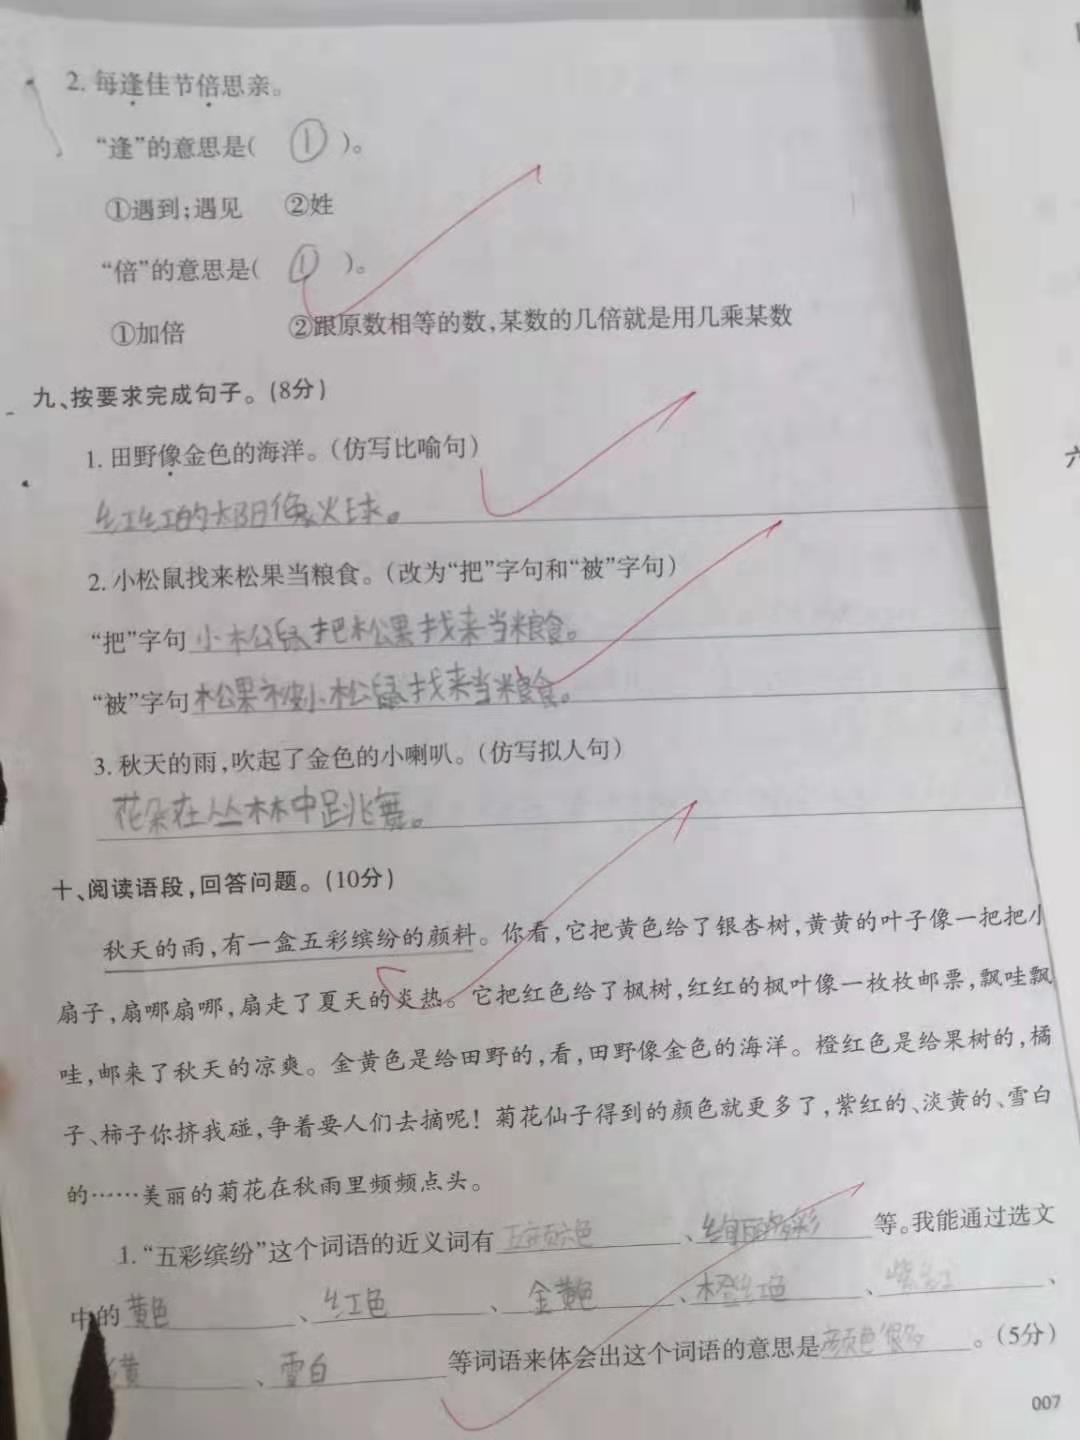 2. 每逢佳节倍思亲。
“逢”的意思是( ① )。
①遇到;遇见 ②姓
“倍”的意思是( ① )。
①加倍 ②跟原数相等的数,某数的几倍就是用几乘某数
九、按要求完成句子。(8分)
1. 田野像金色的海洋。(仿写比喻句)
红红的太阳像火球。
2. 小松鼠找来松果当粮食。(改为“把”字句和“被”字句)
“把”字句 小松鼠把松果找来当粮食。
“被”字句 松果被小松鼠找来当粮食。
3. 秋天的雨,吹起了金色的小喇叭。(仿写拟人句)
花朵在丛林中跳舞。
十、阅读语段,回答问题。(10分)
秋天的雨,有一盒五彩缤纷的颜料。你看,它把黄色给了银杏树,黄黄的叶子像一把把小
扇子,扇哪扇哪,扇走了夏天的炎热。它把红色给了枫树,红红的枫叶像一枚枚邮票,飘哇飘
哇,邮来了秋天的凉爽。金黄色是给田野的,看,田野像金色的海洋。橙红色是给果树的,橘
子、柿子你挤我碰,争着要人们去摘呢!菊花仙子得到的颜色就更多了,紫红的、淡黄的、雪白
的……美丽的菊花在秋雨里频频点头。
1. “五彩缤纷”这个词语的近义词有 五颜六色 、绚丽多彩 等。我能通过选文
中的 黄色 、红色 、金黄色 、橙红色 、紫红 、
黄 、雪白 等词语来体会出这个词语的意思是 颜色很多 。(5分)
007
六